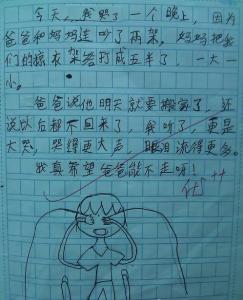 今天,我哭了一个晚上,因为
爸爸和妈妈连吵了两架。妈妈把我
们的
衣架给打成五半了,一大一
小。
爸爸说他明天就要搬家了,还
说以后都不回来了,我听了,更是
大哭,哭得更大声,眼泪流得更多。
我真希望爸爸能不走呀!
优++